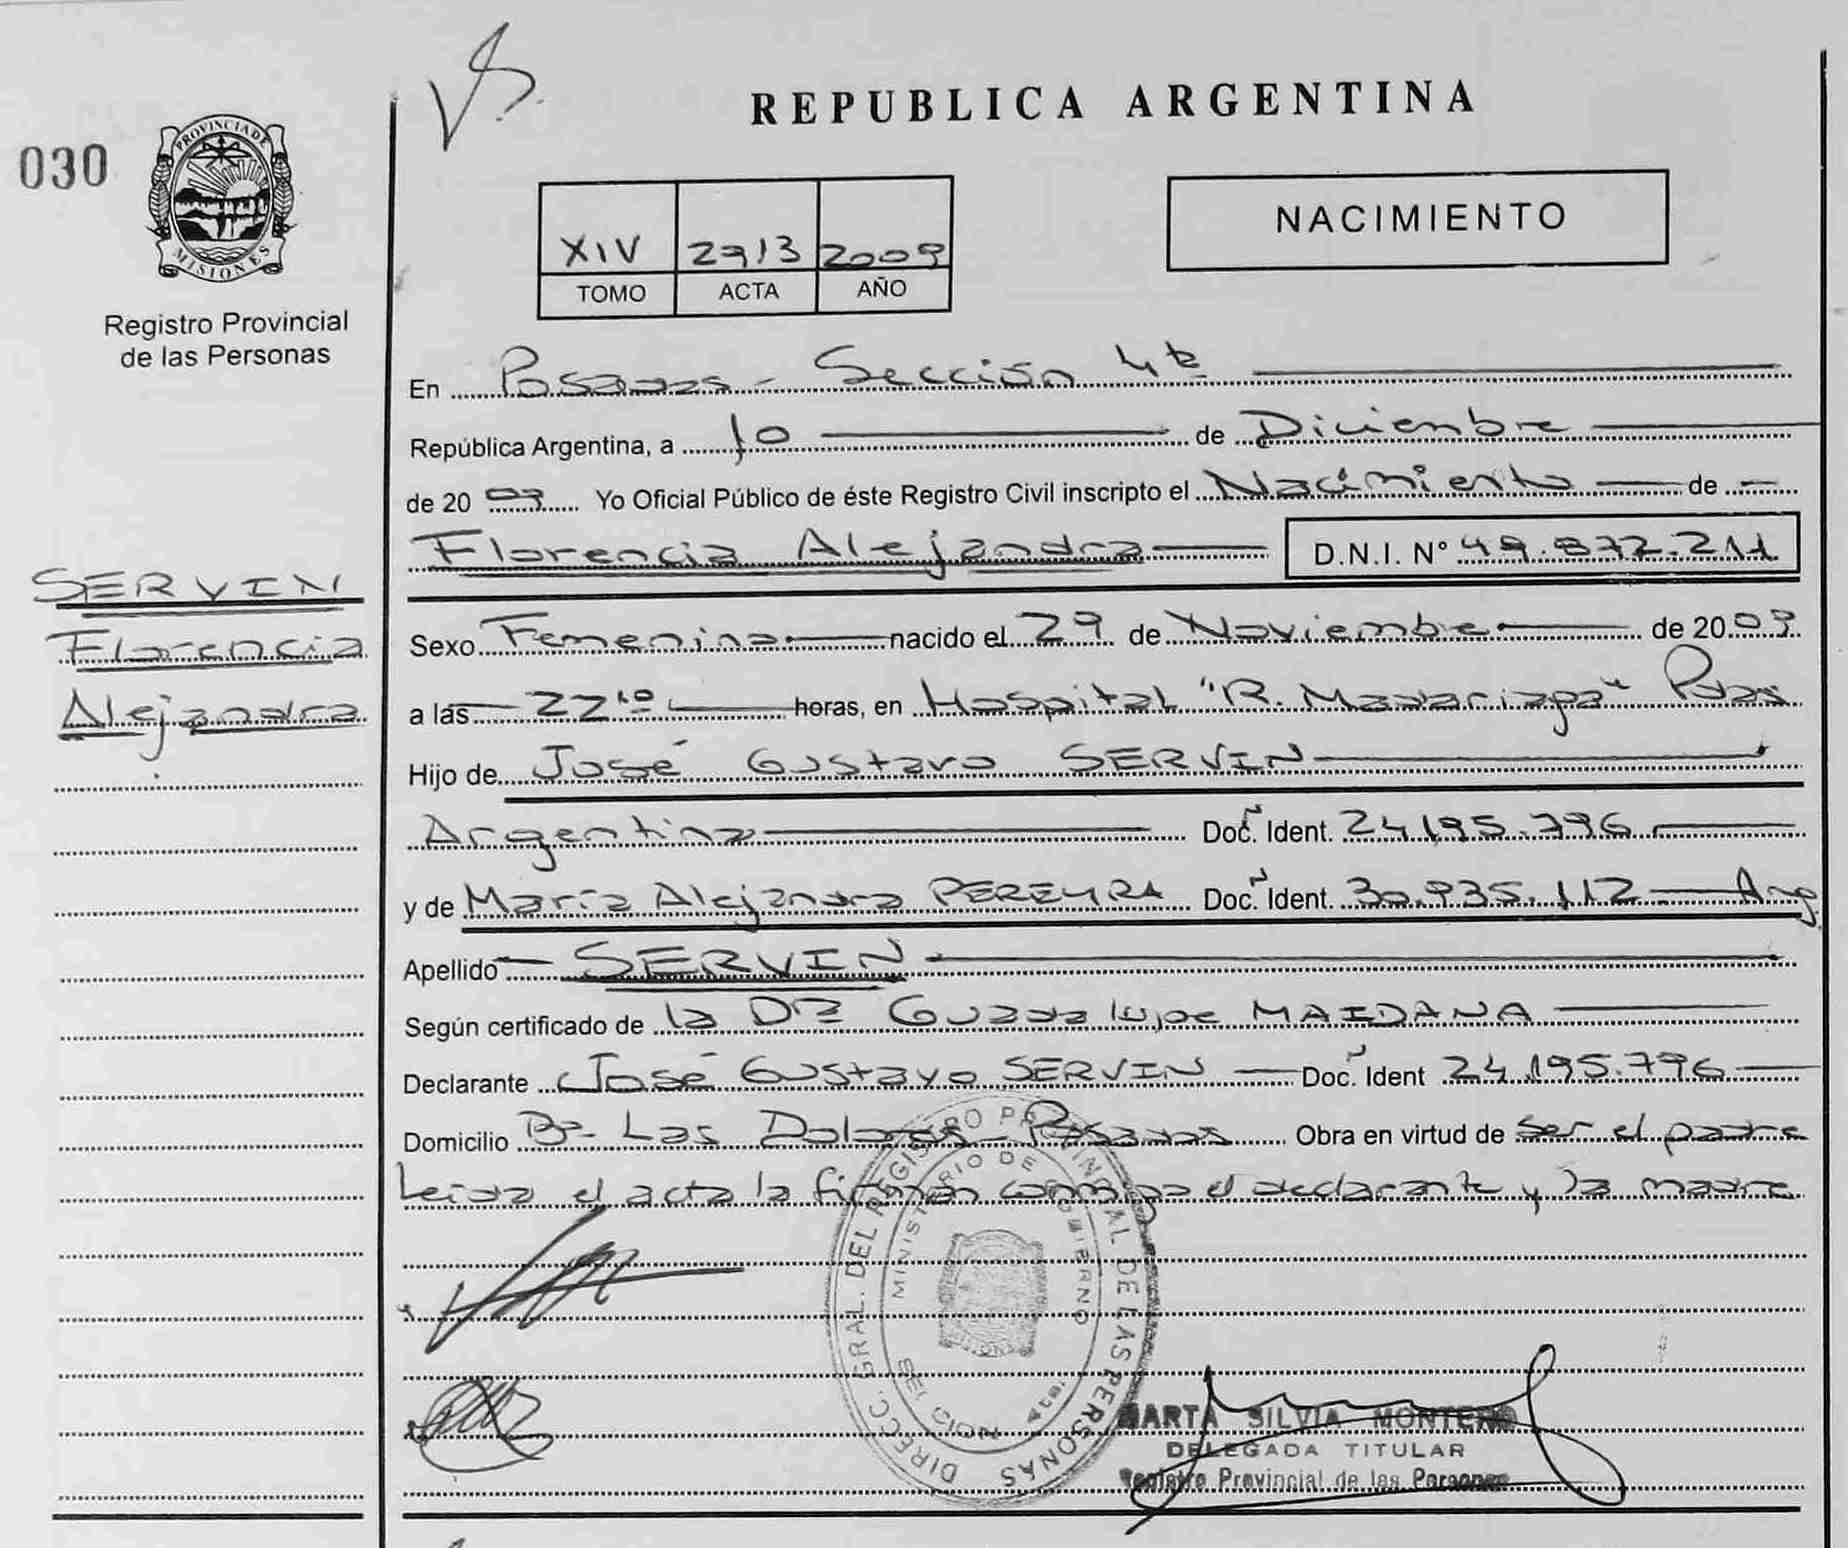 REPUBLICA ARGENTINA
030
PROVINCIA DE
MISIONES
Registro Provincial
de las Personas
NACIMIENTO
XIV 2713 2009
TOMO ACTA AÑO
En Posadas - Sección 4ta
República Argentina, a 10 de Diciembre
de 20 09 Yo Oficial Público de éste Registro Civil inscripto el Nacimiento de
Florencia Alejandra D.N.I. N° 49.872.211
SERVIN
Florencia
Alejandra
Sexo Femenino nacido el 29 de Noviembre de 20 09
a las 22:10 horas, en Hospital "R. Madariaga" Pdas
Hijo de José Gustavo SERVIN
Argentina Doc. Ident. 24.195.796
y de María Alejandra PEREYRA Doc. Ident. 30.935.112 Arg.
Apellido SERVIN
Según certificado de la Dra Guadalupe MAIDANA
Declarante José Gustavo SERVIN Doc. Ident 24.195.796
Domicilio Bº Las Dolores - Posadas Obra en virtud de ser el padre
Leida el acta la firman conmigo el declarante y la madre
DIRECC. GRAL. DEL REGISTRO PROVINCIAL DE LAS PERSONAS
MINISTERIO DE GOBIERNO
MARTA SILVIA MONTERO
DELEGADA TITULAR
Registro Provincial de las Personas